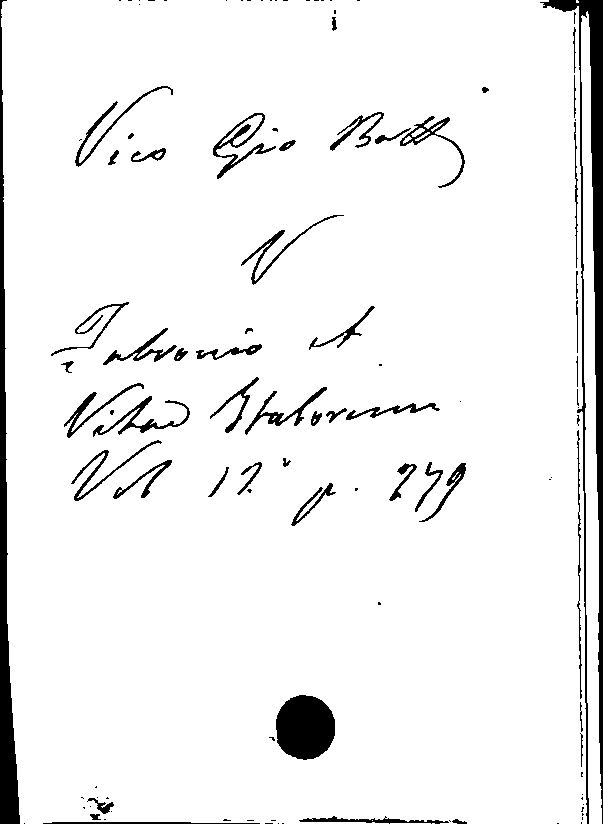 Vico Gio Batt
V
Fabronio A
Vitae Italorum
Vol 12° p. 279